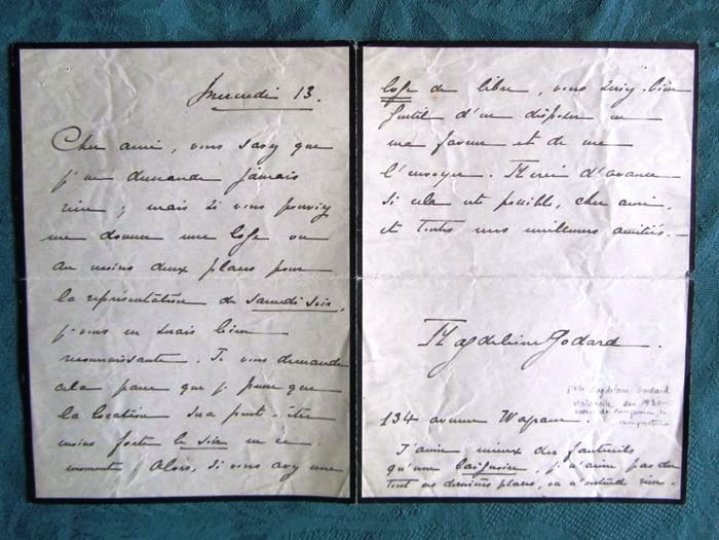 mercredi 13.
Cher ami, vous savez que
je ne demande jamais
rien ; mais si vous pouviez
me donner une loge ou
au moins deux places pour
la représentation de samedi soir,
je vous en serais bien
reconnaissante. Je vous demande
cela parce que je pense que
la location sera peut-être
moins forte le soir en ce
moment ; Alors, si vous avez une
loge de libre, vous seriez bien
gentil d'en disposer en
ma faveur et de me
l'envoyer. Merci d'avance
si cela est possible, cher ami,
et toutes mes meilleures amitiés. _
Magdeleine Godard.
Godard
violoniste
compositeur
134 avenue Wagram.
J'aime mieux des fauteuils
qu'une baignoire, je n'aime pas du
tout ces dernières places, on n'entend rien.